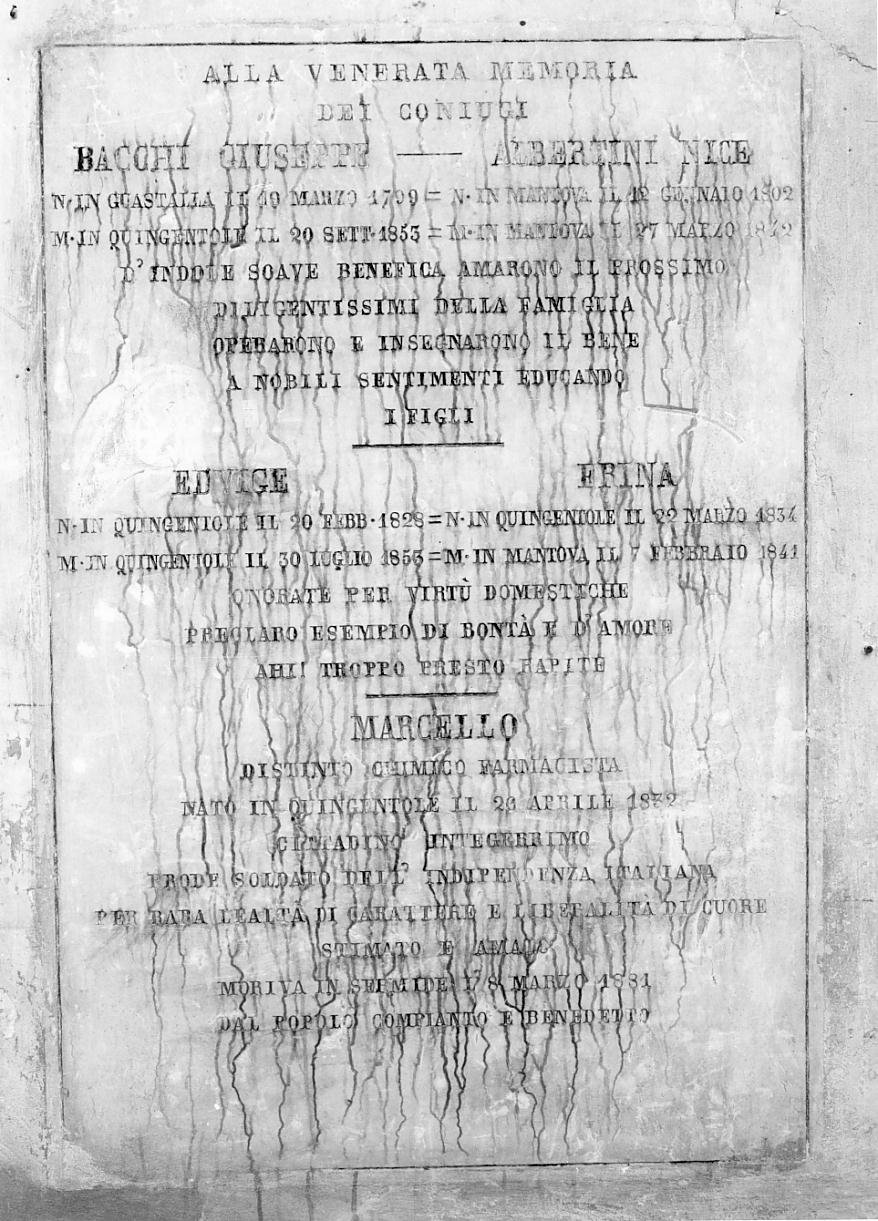 ALLA VENERATA MEMORIA
DEI CONIUGI
BACCHI GIUSEPPE — ALBERTINI NICE
N·IN GUASTALLA IL 19 MARZO 1799 = N·IN MANTOVA IL 12 GENNAIO 1802
M·IN QUINGENTOLE IL 20 SETT·1853 = M·IN MANTOVA IL 27 MARZO
D'INDOLE SOAVE BENEFICA AMARONO IL PROSSIMO
DILIGENTISSIMI DELLA FAMIGLIA
OPERARONO E INSEGNARONO IL BENE
A NOBILI SENTIMENTI EDUCANDO
I FIGLI
EDVIGE ERINA
N·IN QUINGENTOLE IL 20 FEBB·1828 = N·IN QUINGENTOLE IL 22 MARZO 1834
M·IN QUINGENTOLE IL 30 LUGLIO 1853 = M·IN MANTOVA IL 7 FEBBRAIO 1841
ONORATE PER VIRTÙ DOMESTICHE
PRECLARO ESEMPIO DI BONTÀ E D'AMORE
AHI! TROPPO PRESTO RAPITE
MARCELLO
DISTINTO CHIMICO FARMACISTA
NATO IN QUINGENTOLE IL 29 APRILE
CITTADINO INTEGERRIMO
PRODE SOLDATO DELL' INDIPENDENZA ITALIANA
PER RARA LEALTÀ DI CARATTERE E LIBERALITÀ DI CUORE
STIMATO E AMATO
MORIVA IN SERMIDE L'8 MARZO 1881
DAL POPOLO COMPIANTO E BENEDETTO